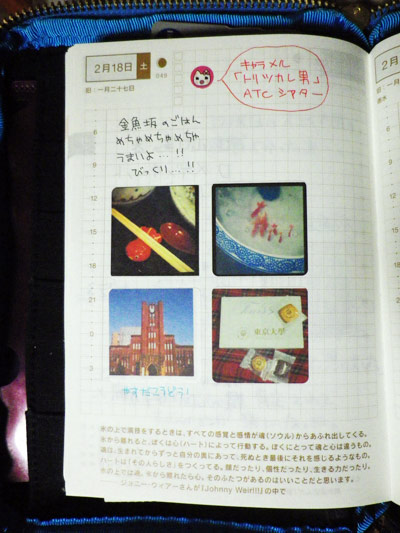 2月18日 土
049
旧:一月二十七日
キャラメル
「トリツカレ男」
ATCシアター
金魚坂のごはん
めちゃめちゃめちゃ
うまいよ…!!
びっくり…!!
6
9
12
15
18
21
0
3
東京大學
やすだこうどう!
氷の上で演技をするときは、すべての感覚と感情が魂(ソウル)からあふれ出してくる。
氷から離れると、ぼくは心(ハート)によって行動する。ぼくにとって魂と心は違うもの。
魂は、生まれてからずっと自分の奥にあって、死ぬとき最後にそれを感じるようなもの。
ハートは「その人らしさ」をつくってる。顔だったり、個性だったり、生きる力だったり。
氷の上では魂、氷から離れたら心。そのふたつがあるのはいいことだと思います。
ジョニー・ウィアーさんが『Johnny Weir!!』の中で